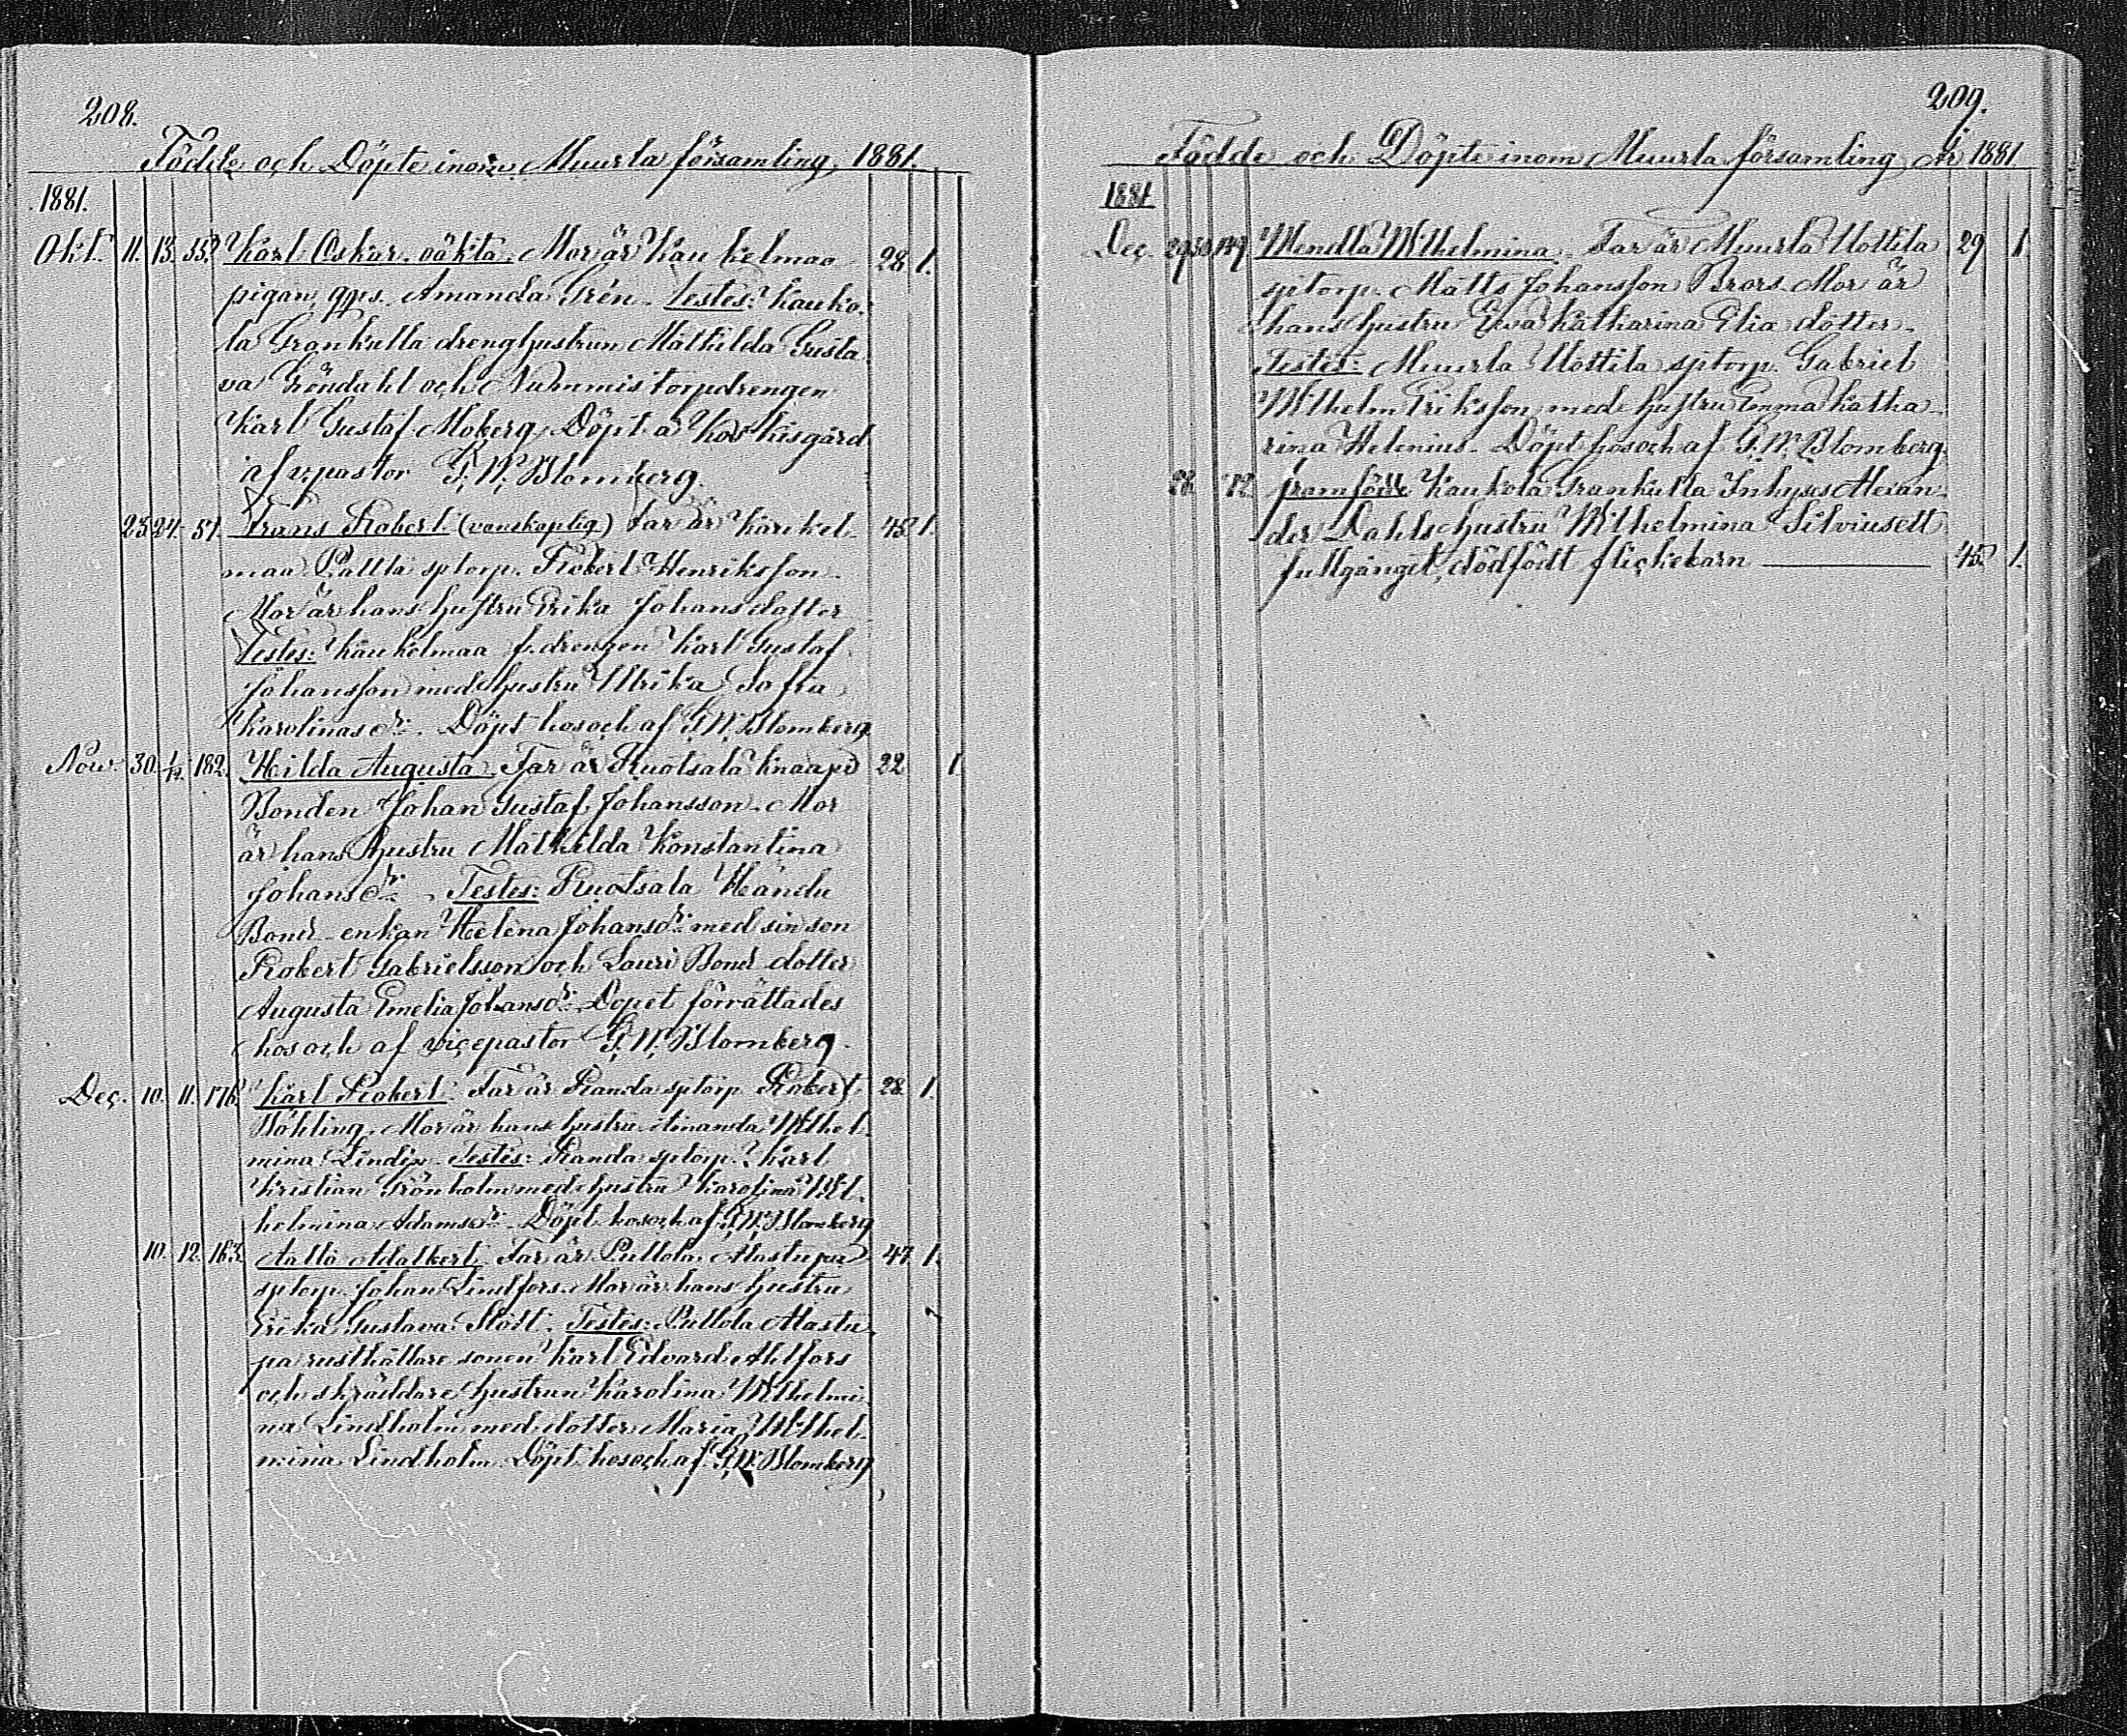 208.
Födde och Döpte inom Muurla församling, 1881.
1881.
Okt. 11. 13. 55. Karl Oskar. oäkta. Mor är Kaukelmaa 28. 1.
pigan, qps. Amanda Grén. Testes: Kauko-
la Grankulla drenghustrun Mathilda Gusta-
va Gröndahl och Nummis torpdrengen
Karl Gustaf Moberg. Döpt å Koskisgård
af v.pastor G.W. Blomberg.
23. 24. 51. Frans Robert (vanskaplig) Far är Kaukel- 45. 1.
maa Pallta sptorp. Robert Henriksson.
Mor är hans hustru Erika Johansdotter
Testes: Kaukelmaa f.drengen Karl Gustaf
Johansson med hustru Ulrika Sofia
Karolinasdr. Döpt hos och af G.W. Blomberg
Nov. 30. 1/12. 182. Hilda Augusta. Far är Ruotsala Knaapo 22 1.
Bonden Johan Gustaf Johansson. Mor
är hans hustru Mathilda Konstantina
Johansdr. Testes: Ruotsala Händu
Bond-enkan Helena Johansdr. med sin son
Robert Gabrielsson och Lauri Bond dotter
Augusta Emelia Johansdr. Dopet förrättades
hos och af vicepastor G.W. Blomberg.
Dec. 10. 11. 176. Karl Robert. Far är Randa sptorp Robert 28. 1.
Böhling. Mor är hans hustru Amanda Wilhel-
mina Lindin. Testes: Randa sptorp. Karl
Kristian Grönholm med hustru Karolina Wil-
helmina Adamsdr. Döpt hos och af G.W. Blomberg
10. 12. 163. Aatto Adalbert. Far är Pullola Alastupa 47. 1.
sptorp. Johan Lindfors. Mor är hans hustru
Erika Gustava Slott. Testes: Pullola Alastu-
pa rusthållare sonen Karl Edvard Ahlfors
och skräddare hustrun Karolina Wilhelmi-
na Lindholm med dotter Maria Wilhel-
mina Lindholm. Döpt hos och af G.W. Blomberg
209.
Födde och Döpte inom Muurla församling År 1881
1881
Dec. 29 30 149 Wendla Wilhelmina. Far är Muurla Uottila 29 1.
sptorp. Matts Johansson Brors. Mor är
hans hustru Eva Katharina Eliæ dotter.
Testes: Muurla Uottila sptorp. Gabriel
Wilhelm Eriksson med hustru Emma Katha-
rina Helenius. Döpt hos och af G.W. Blomberg.
28. 72. framfödde Kaukola Grankulla Inhyses Alexan-
der Dahls hustru Wilhelmina Silvius ett
fullgånget, dödfödt flickebarn 45. 1.